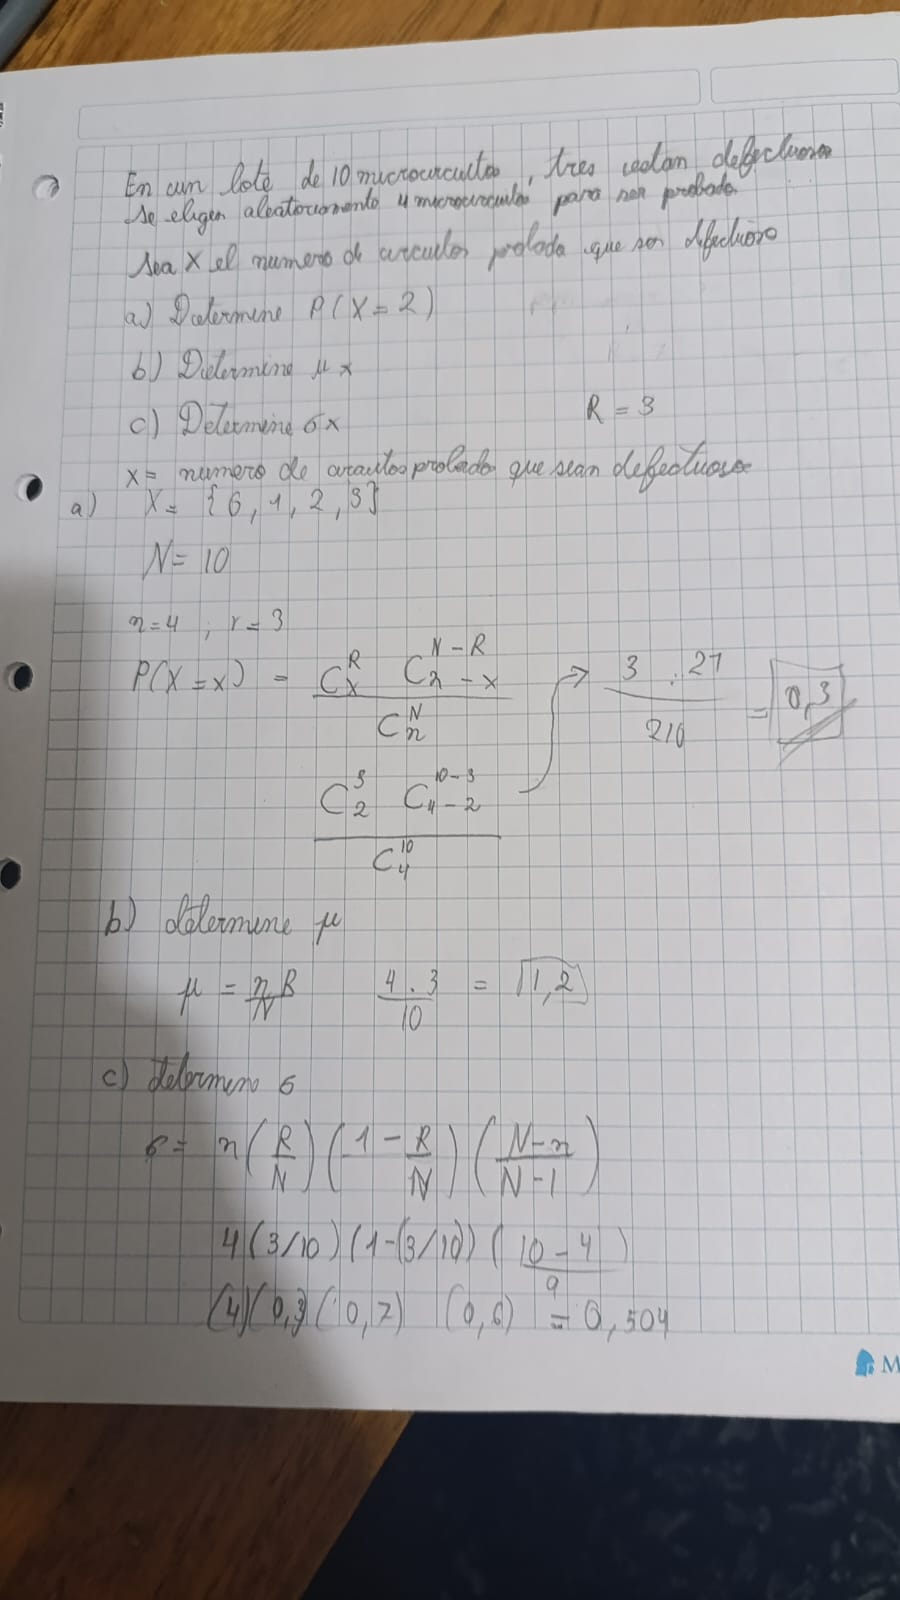 En un lote de 10 microcircuitos, tres estan defectuosos
se eligen aleatoriamente 4 microcircuitos para ser probados
sea X el numero de circuitos probados que son defectuoso
a) Determine P(X=2)
b) Determine μ x
c) Determine σx R = 3
x = numero de circuitos probados que sean defectuosos
a) X = {0, 1, 2, 3}
N = 10
n=4 ; r=3
P(X=x) = C^R_x C^{N-R}_{n-x} / C^N_n → 3 . 21 / 210 = 0,3
C^3_2 C^{10-3}_{4-2} / C^{10}_4
b) determine μ
μ = n R / N 4 . 3 / 10 = 1,2
c) determine σ
σ = n (R/N) (1 - R/N) (N-n / N-1)
4 (3/10) (1-(3/10)) (10-4 / 9)
(4) (0,3 (0,7) (0,6) = 0,504
M